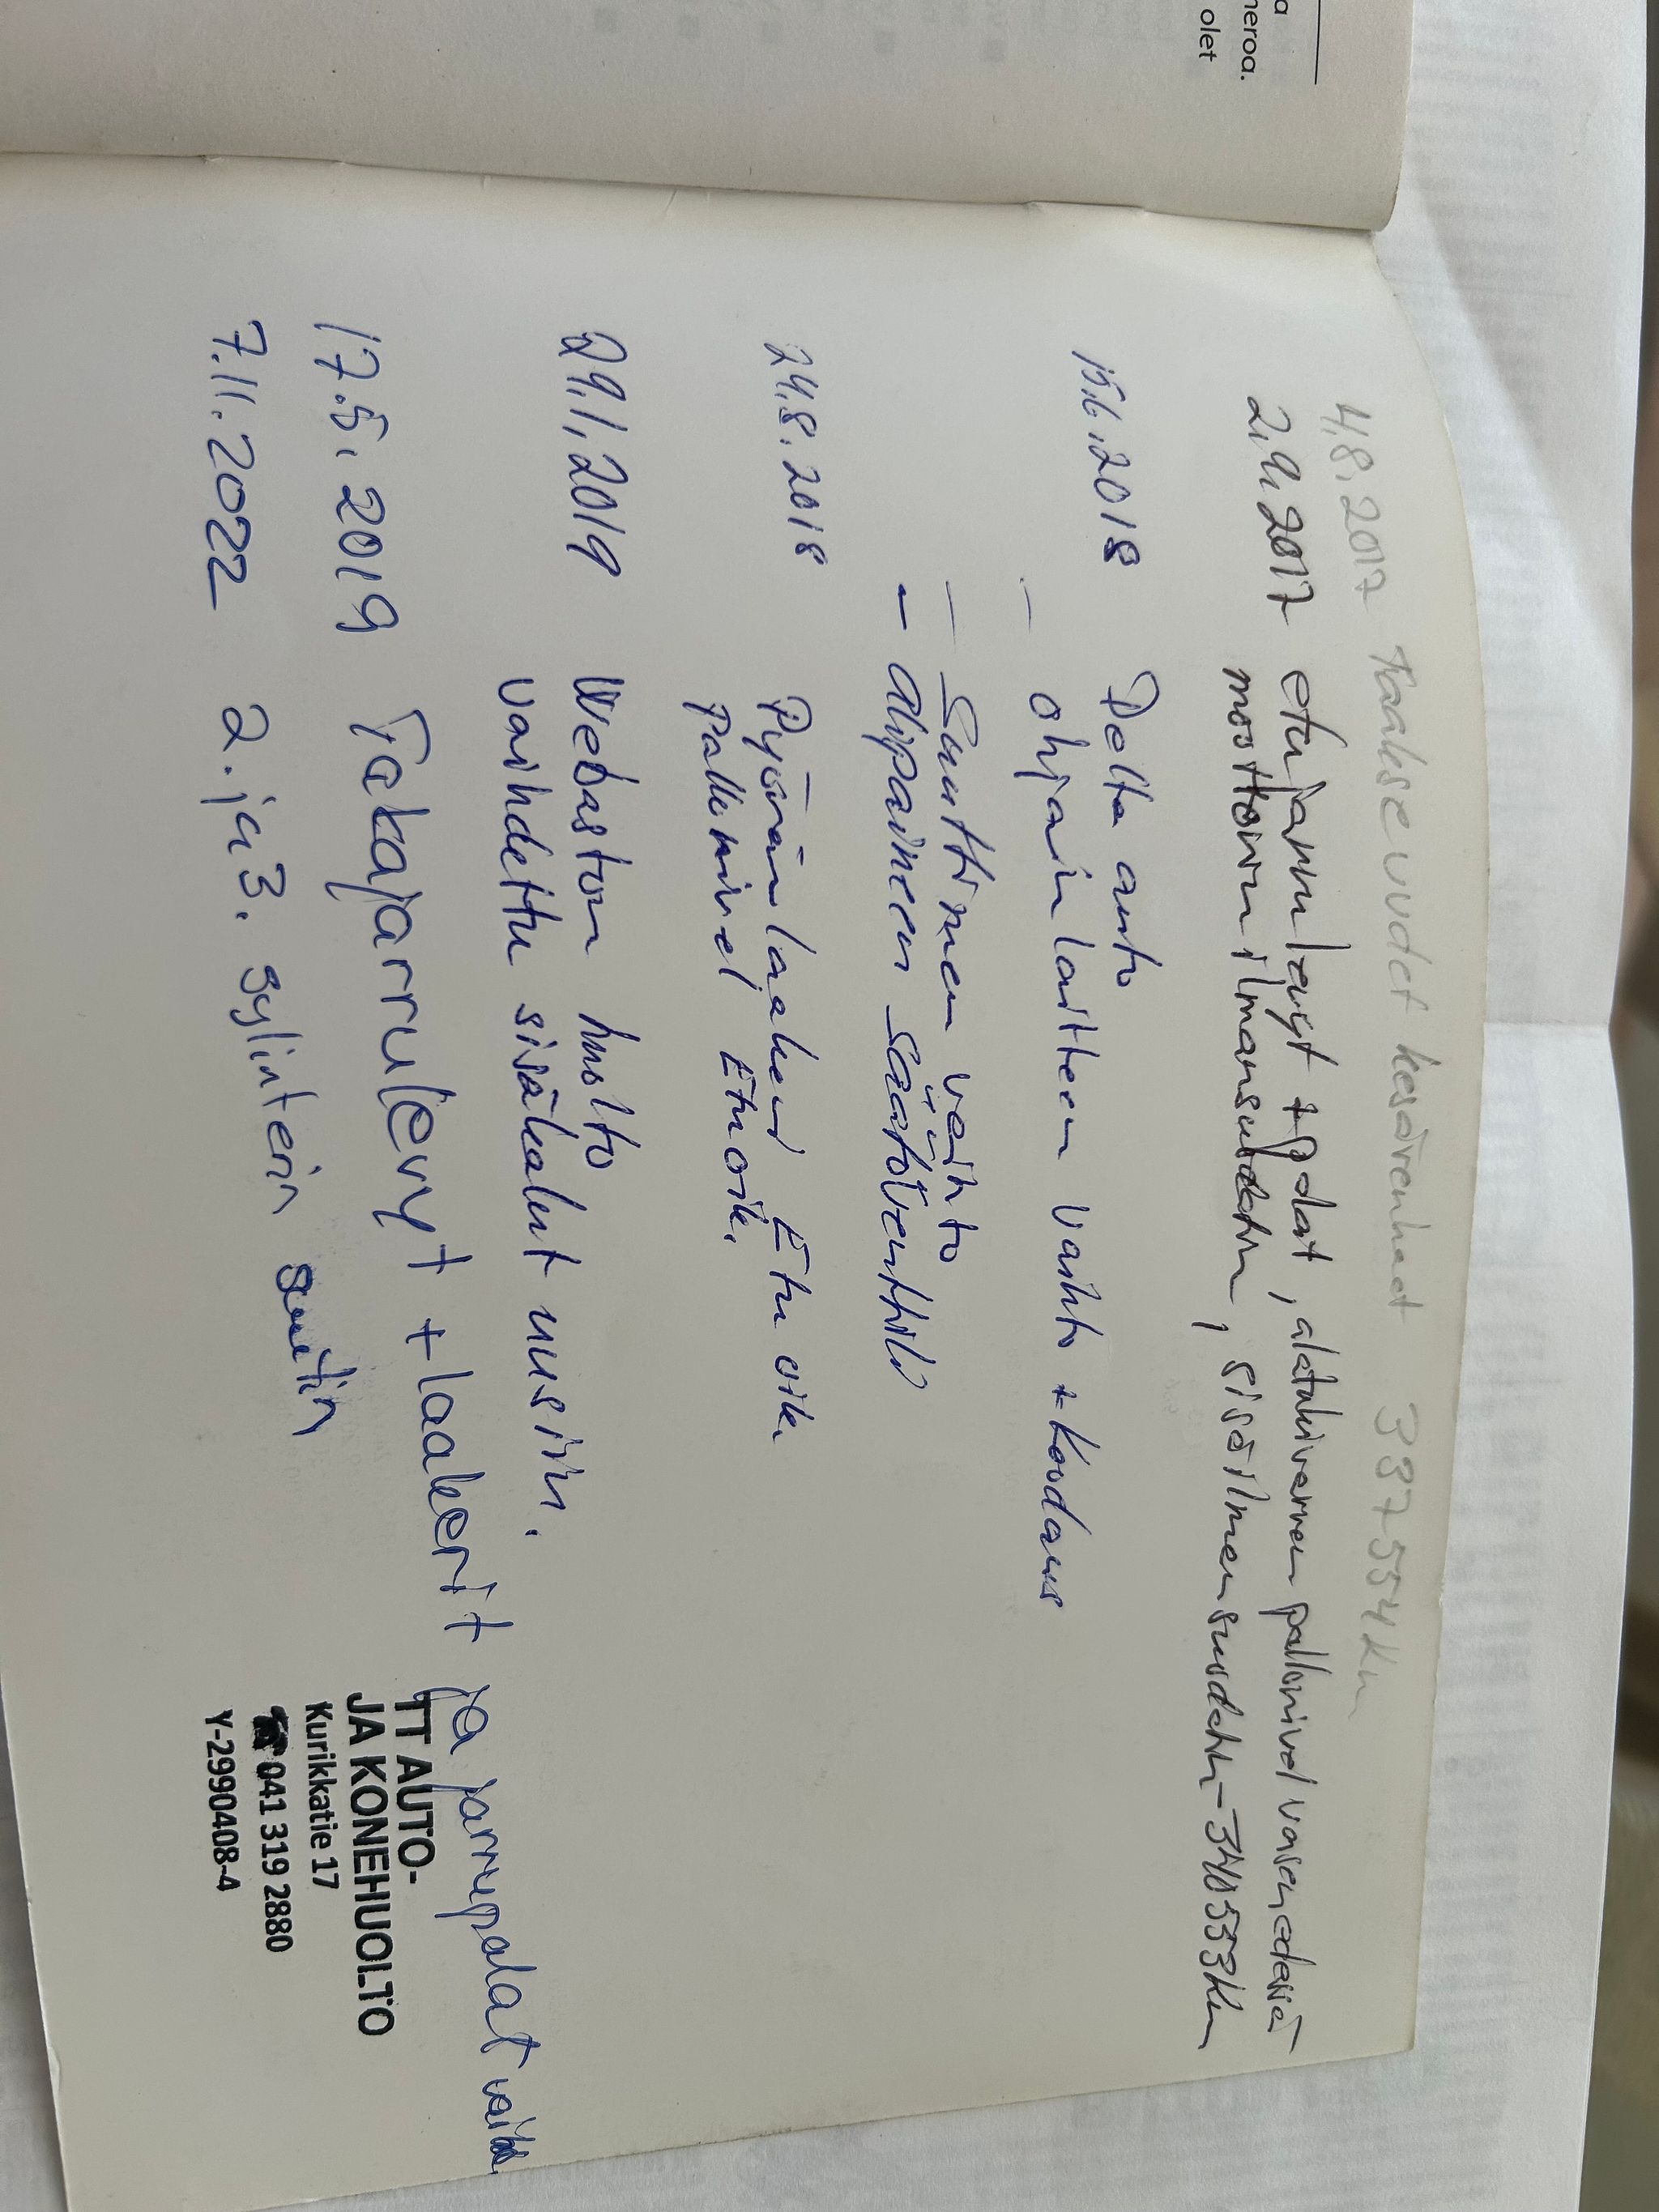 a
neroa.
olet
4.8.2017 taakse uudet kesärenkaat 337554 km
2.9.2017 etujarrulevyt + palat, alatukivarren pallonivel vasen edessä
moottorin ilmansuodatin, sisäilman suodatin - 340553 km
15.6.2018 Delta auto
- ohjainlaitteen vaihto + koodaus
- Suuttimen vaihto
- alipaineen säätöventtiili
24.8.2018 Pyörän laakeri Etu oik.
Pallonivel Etu oik.
29.1.2019 Webaston huolto
vaihdettu sisäkalut uusiin.
17.5.2019 Takajarrulevyt + laakerit ja jarrupalat
7.11.2022 2. ja 3. sylinterin suutin
TT AUTO-
JA KONEHUOLTO
Kurikkatie 17
☎ 041 319 2880
Y-2990408-4